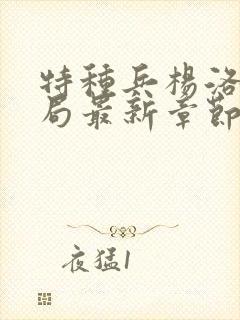 特種兵楊洛
局最新章節
夜猛1